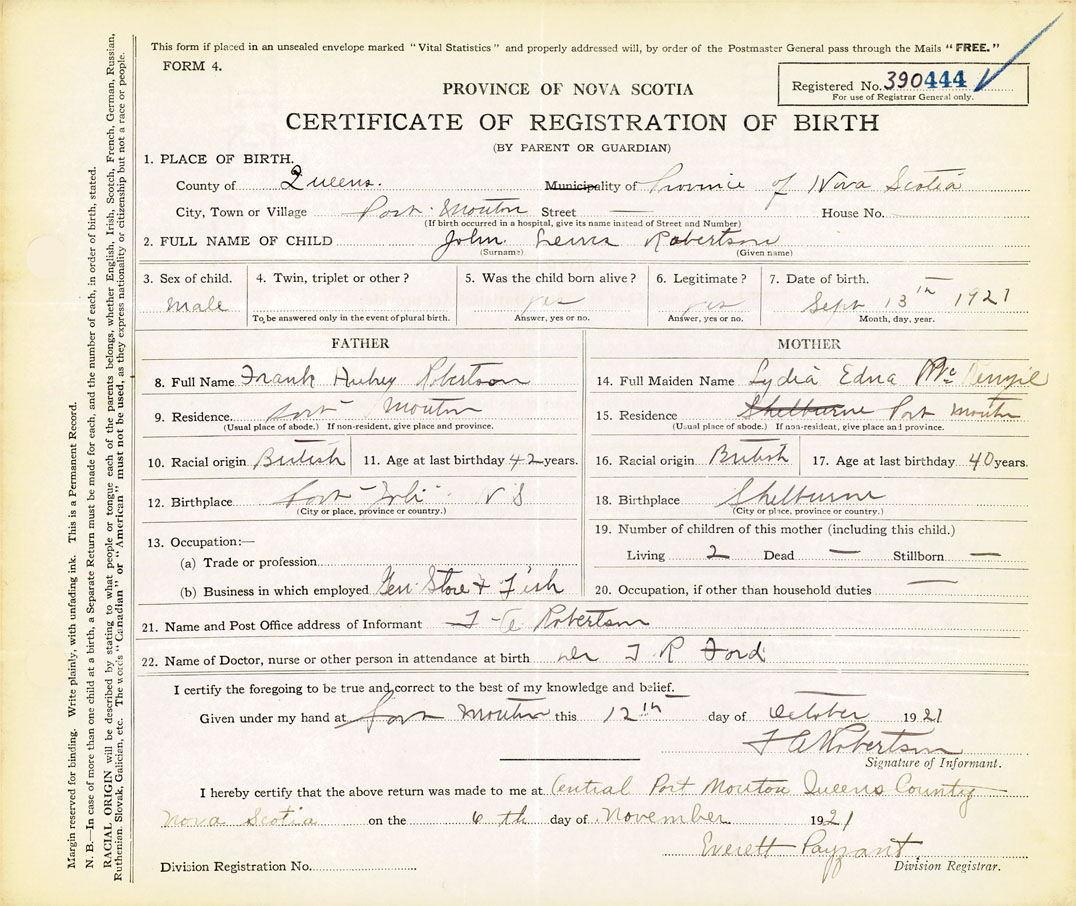 This form if placed in an unsealed envelope marked "Vital Statistics" and properly addressed will, by order of the Postmaster General pass through the Mails "FREE."
FORM 4.
Registered No. 390444
For use of Registrar General only.
PROVINCE OF NOVA SCOTIA
CERTIFICATE OF REGISTRATION OF BIRTH
(BY PARENT OR GUARDIAN)
1. PLACE OF BIRTH.
County of Queens. Municipality of Province of Nova Scotia
City, Town or Village Port Mouton Street — House No.
(If birth occurred in a hospital, give its name instead of Street and Number)
2. FULL NAME OF CHILD John Lewis Robertson
(Surname) (Given name)
3. Sex of child. 4. Twin, triplet or other? 5. Was the child born alive? 6. Legitimate? 7. Date of birth.
Male yes yes Sept 13th 1921
To be answered only in the event of plural birth. Answer, yes or no. Answer, yes or no. Month, day, year.
FATHER
8. Full Name Frank Aubrey Robertson
9. Residence. Port Mouton
(Usual place of abode.) If non-resident, give place and province.
10. Racial origin British 11. Age at last birthday 42 years.
12. Birthplace Port N S
(City or place, province or country.)
13. Occupation:—
(a) Trade or profession
(b) Business in which employed Gen Store & Fish
MOTHER
14. Full Maiden Name Lydia Edna Mc
15. Residence Shelburne Port Mouton
(Usual place of abode.) If non-resident, give place and province.
16. Racial origin British 17. Age at last birthday 40 years.
18. Birthplace Shelburne
(City or place, province or country.)
19. Number of children of this mother (including this child.)
Living 2 Dead — Stillborn —
20. Occupation, if other than household duties —
21. Name and Post Office address of Informant F A Robertson
22. Name of Doctor, nurse or other person in attendance at birth Dr Ford
I certify the foregoing to be true and correct to the best of my knowledge and belief.
Given under my hand at Port Mouton this 12th day of October 1921
F A Robertson
Signature of Informant.
I hereby certify that the above return was made to me at Central Port Mouton Queens County
Nova Scotia on the 6th day of November 1921
Everett Payzant
Division Registration No. Division Registrar.
Margin reserved for binding. Write plainly, with unfading ink. This is a Permanent Record.
N. B.—In case of more than one child at a birth, a Separate Return must be made for each, and the number of each, in order of birth, stated.
RACIAL ORIGIN will be described by stating to what people or tongue each of the parents belongs, whether English, Irish, Scotch, French, German, Russian,
Ruthenian, Slovak, Galician, etc. The words "Canadian" or "American" must not be used, as they express nationality or citizenship but not a race or people.